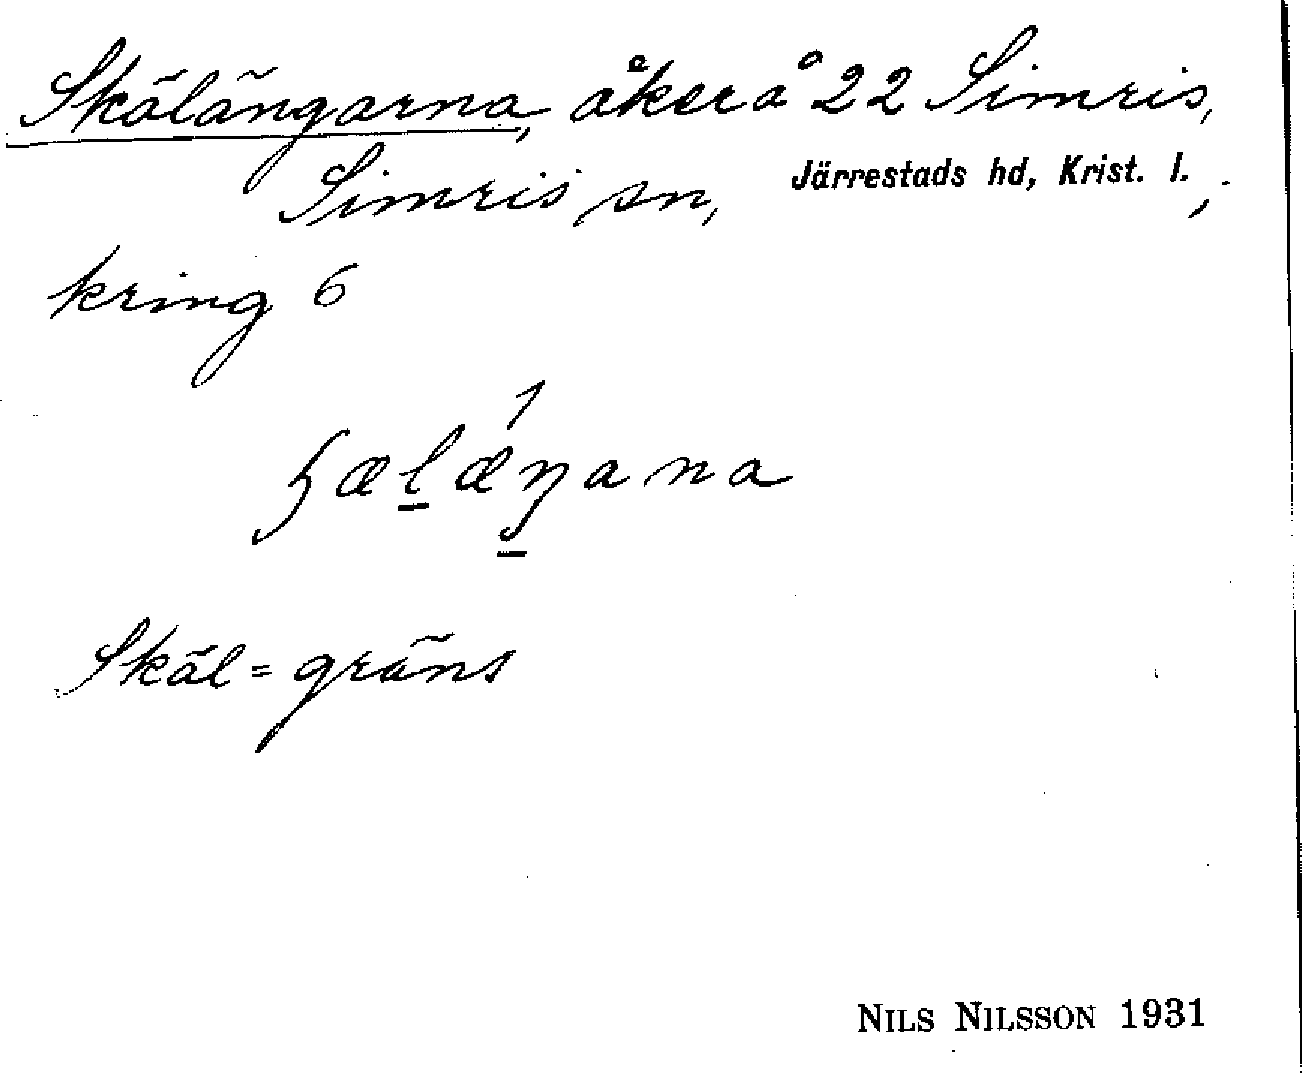 Skälängarna, åker å 22 Simris,
Simris sn, Järrestads hd, Krist. l.,
kring 6
ɧælǽŋana
Skäl = gräns
NILS NILSSON 1931